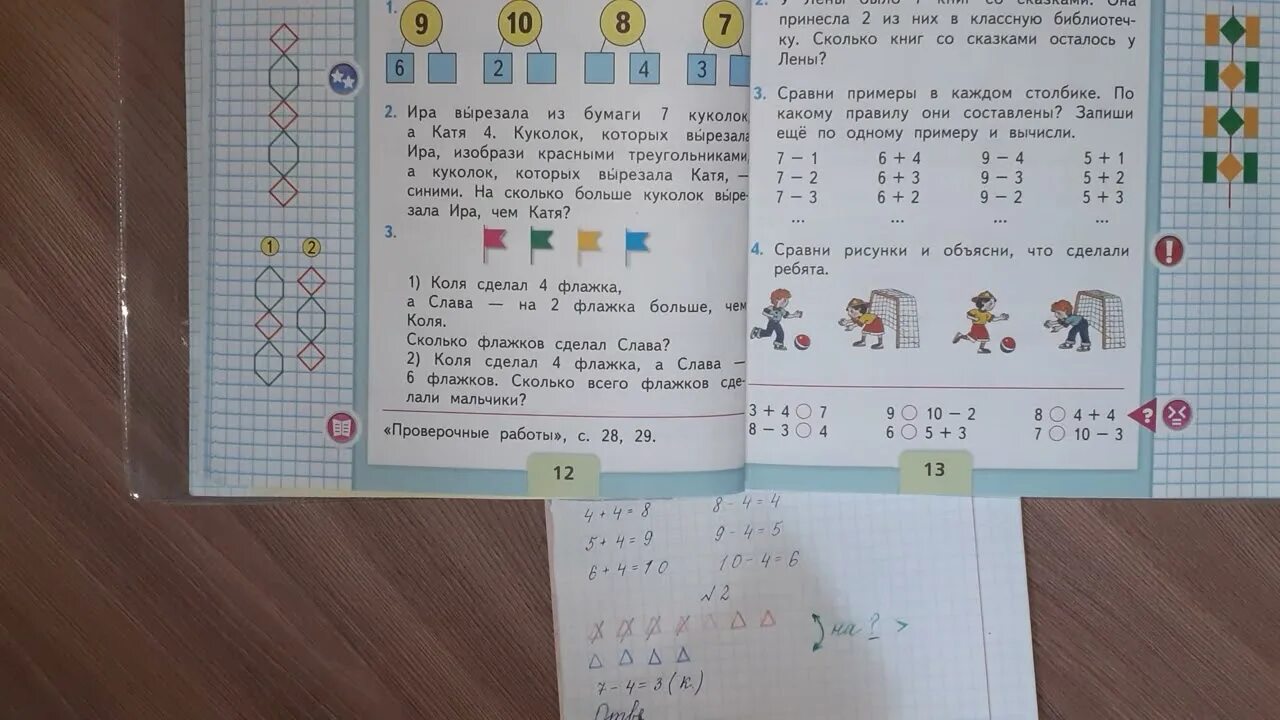 1.
9 10 8 7
6 2 4 3
2. Ира вырезала из бумаги 7 куколок,
а Катя 4. Куколок, которых вырезала
Ира, изобрази красными треугольниками,
а куколок, которых вырезала Катя, —
синими. На сколько больше куколок выре-
зала Ира, чем Катя?
3.
1) Коля сделал 4 флажка,
а Слава — на 2 флажка больше, чем
Коля.
Сколько флажков сделал Слава?
2) Коля сделал 4 флажка, а Слава —
6 флажков. Сколько всего флажков сде-
лали мальчики?
«Проверочные работы», с. 28, 29.
12
1 2
2. У Лены было 7 книг со сказками. Она
принесла 2 из них в классную библиотеч-
ку. Сколько книг со сказками осталось у
Лены?
3. Сравни примеры в каждом столбике. По
какому правилу они составлены? Запиши
ещё по одному примеру и вычисли.
7 − 1 6 + 4 9 − 4 5 + 1
7 − 2 6 + 3 9 − 3 5 + 2
7 − 3 6 + 2 9 − 2 5 + 3
... ... ... ...
4. Сравни рисунки и объясни, что сделали
ребята.
3 + 4 ○ 7 9 ○ 10 − 2 8 ○ 4 + 4
8 − 3 ○ 4 6 ○ 5 + 3 7 ○ 10 − 3
?
!
13
4 + 4 = 8 8 − 4 = 4
5 + 4 = 9 9 − 4 = 5
6 + 4 = 10 10 − 4 = 6
№ 2
на ? >
7 − 4 = 3 (к.)
Отве